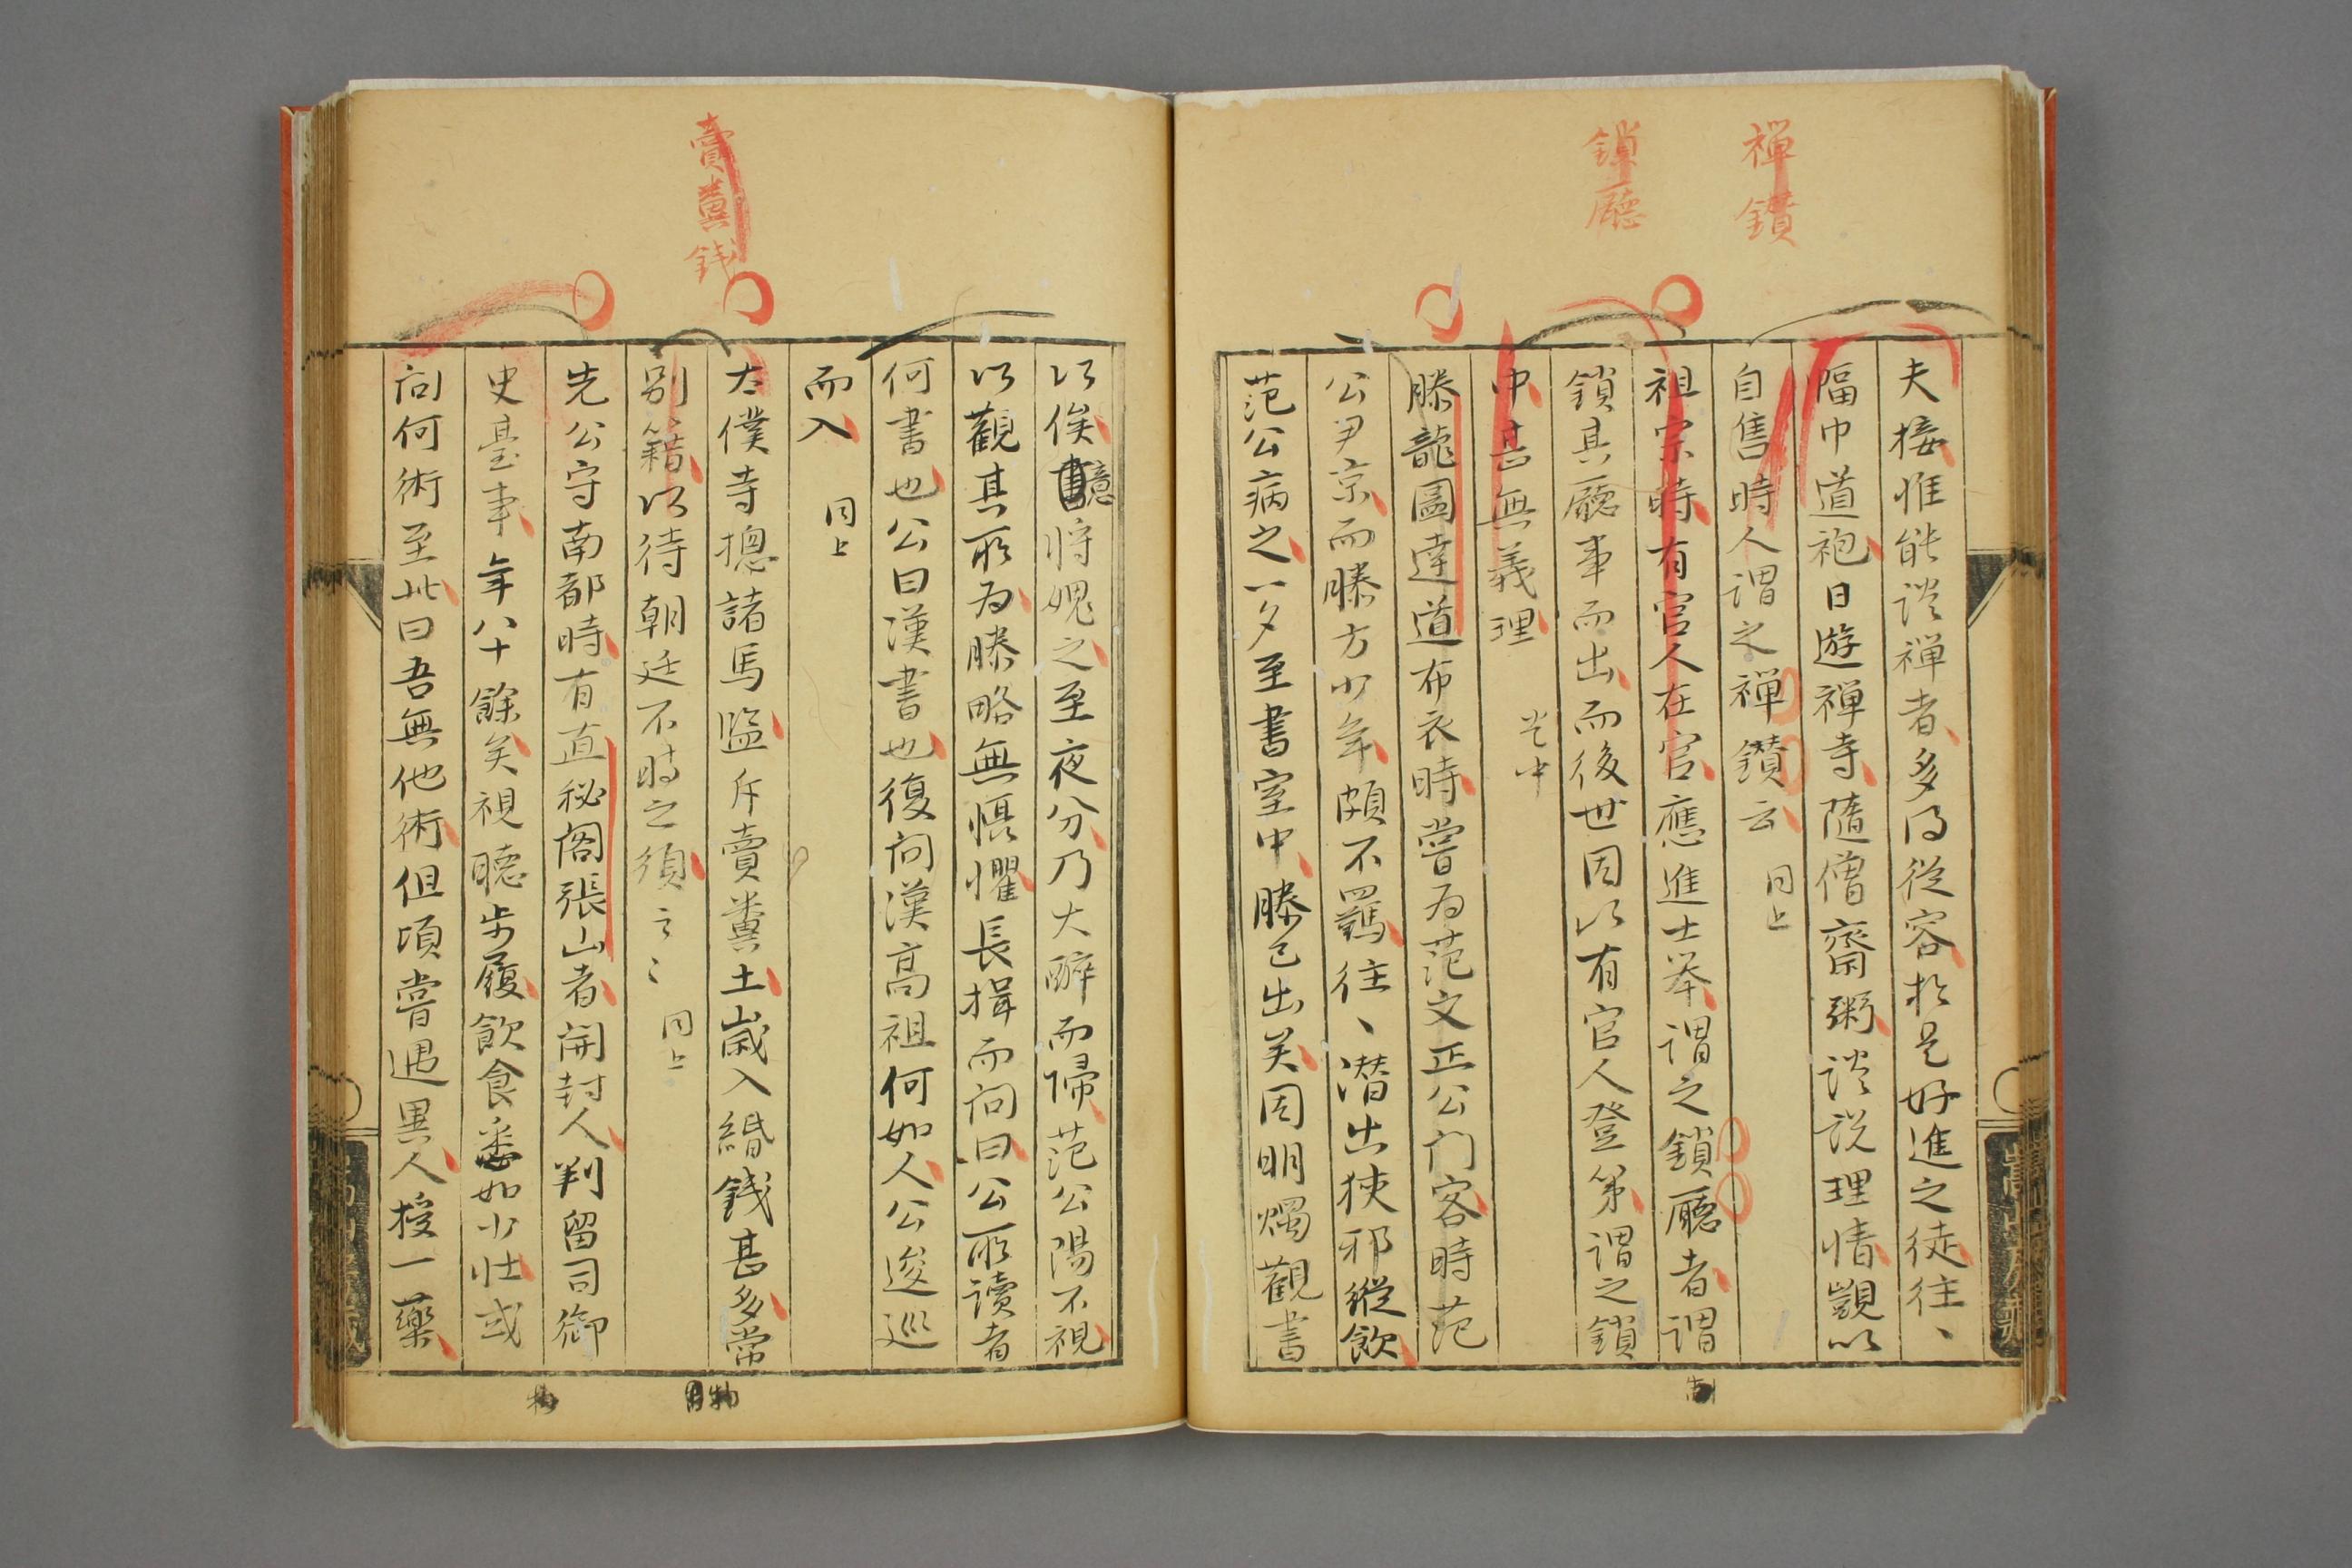 禪鑚
鎖廳
夫接惟能談禪者多得從容於是好進之徒往、
幅巾道袍日遊禪寺隨僧齋粥談説理情覬以
自售時人謂之禪鑚云 同上
祖宗時有官人在官應進士举謂之鎖廳者謂
鎖其廳事而出而後世因以有官人登第謂之鎖
中甚無義理
滕龍圖達道布衣時嘗為范文正公门客時范
公尹京而滕方少年頗不羈往、潜出狹邪縱飲
范公病之一夕至書室中滕已出矣因明燭觀書
賣糞錢
以俟意將媿之至夜分乃大醉而歸范公陽不視
以觀其所為滕略無愳懼長揖而问曰公所讀者
何書也公曰漢書也復问漢髙祖何如人公逡巡
而入 同上
太僕寺摠諸馬監斥賣糞土嵗入緡錢甚多常
别籍以待朝廷不時之須 同上
先公守南都時有直秘閣張山者開封人判留司御
史臺事年八十餘矣視聽步履飲食悉如少壯或
问何術至此曰吾無他術但頃嘗遇異人授一藥